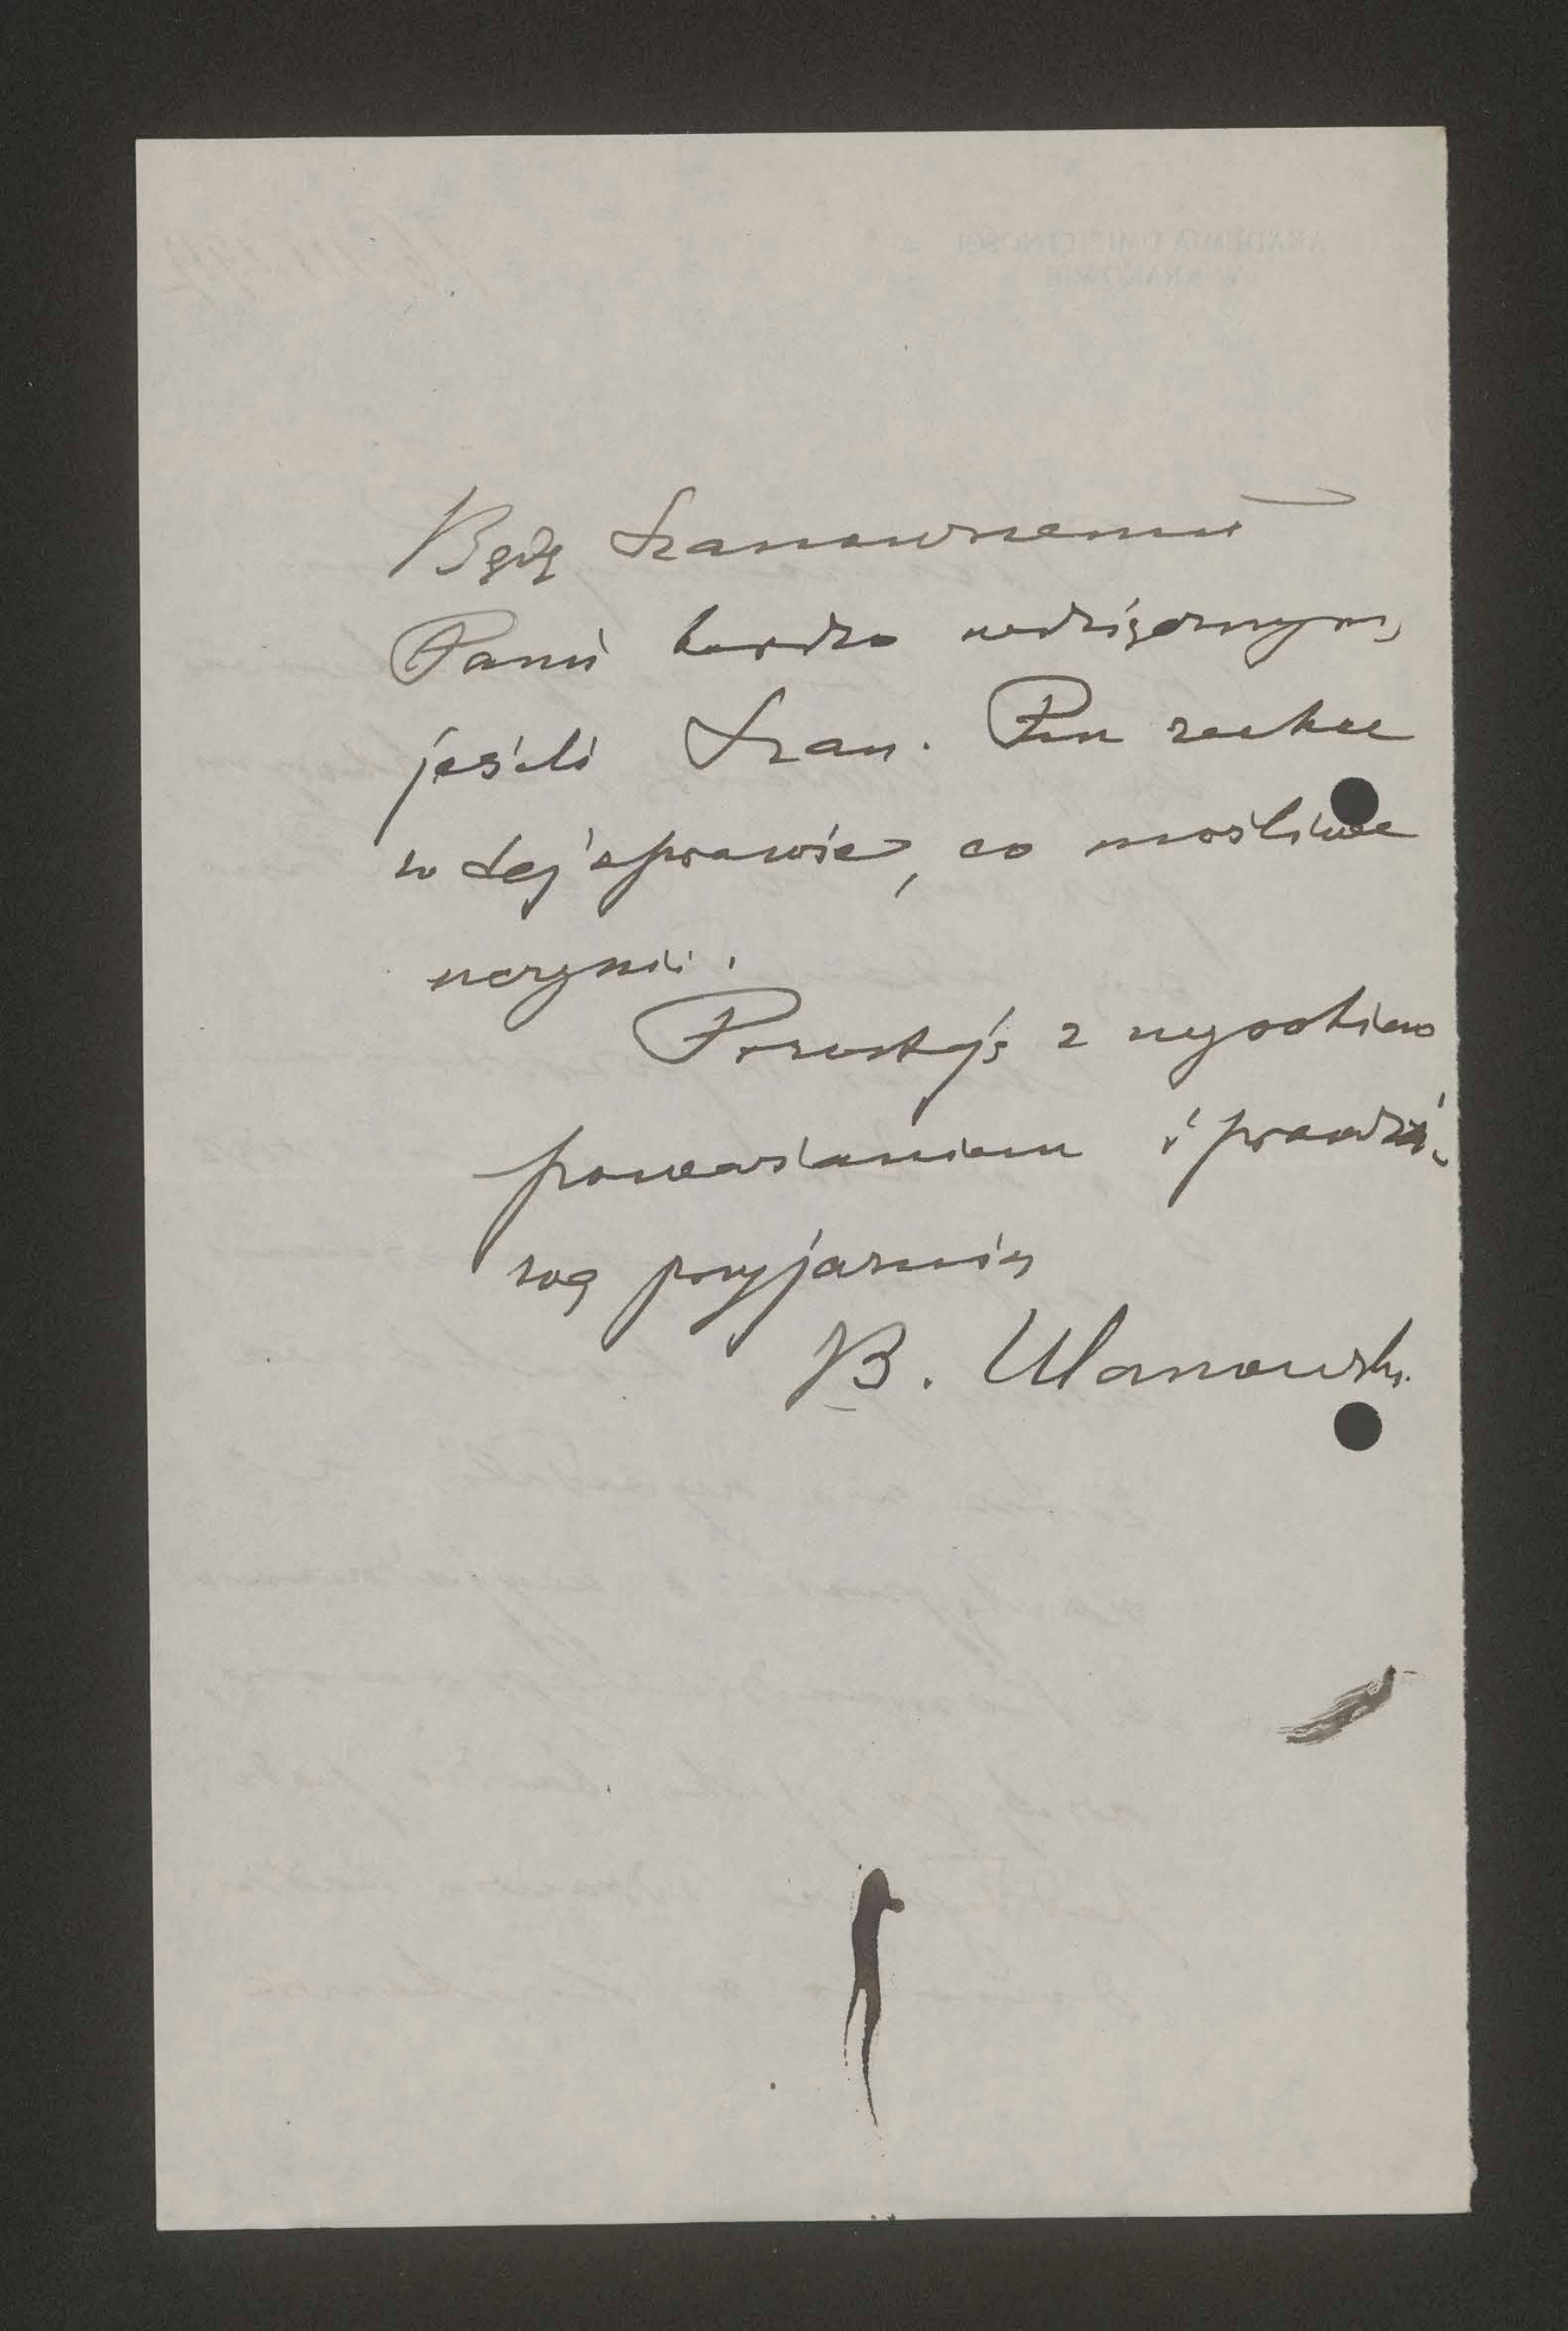 Będę Szanownemu
Panu bardzo wdzięcznym,
jeśli Szan. Pan zechce
w tej sprawie, co możliwe
uczynić.
Pozostaję z wysokiem
poważaniem i prawdzi-
wą przyjaźnią
B. Ulanowski